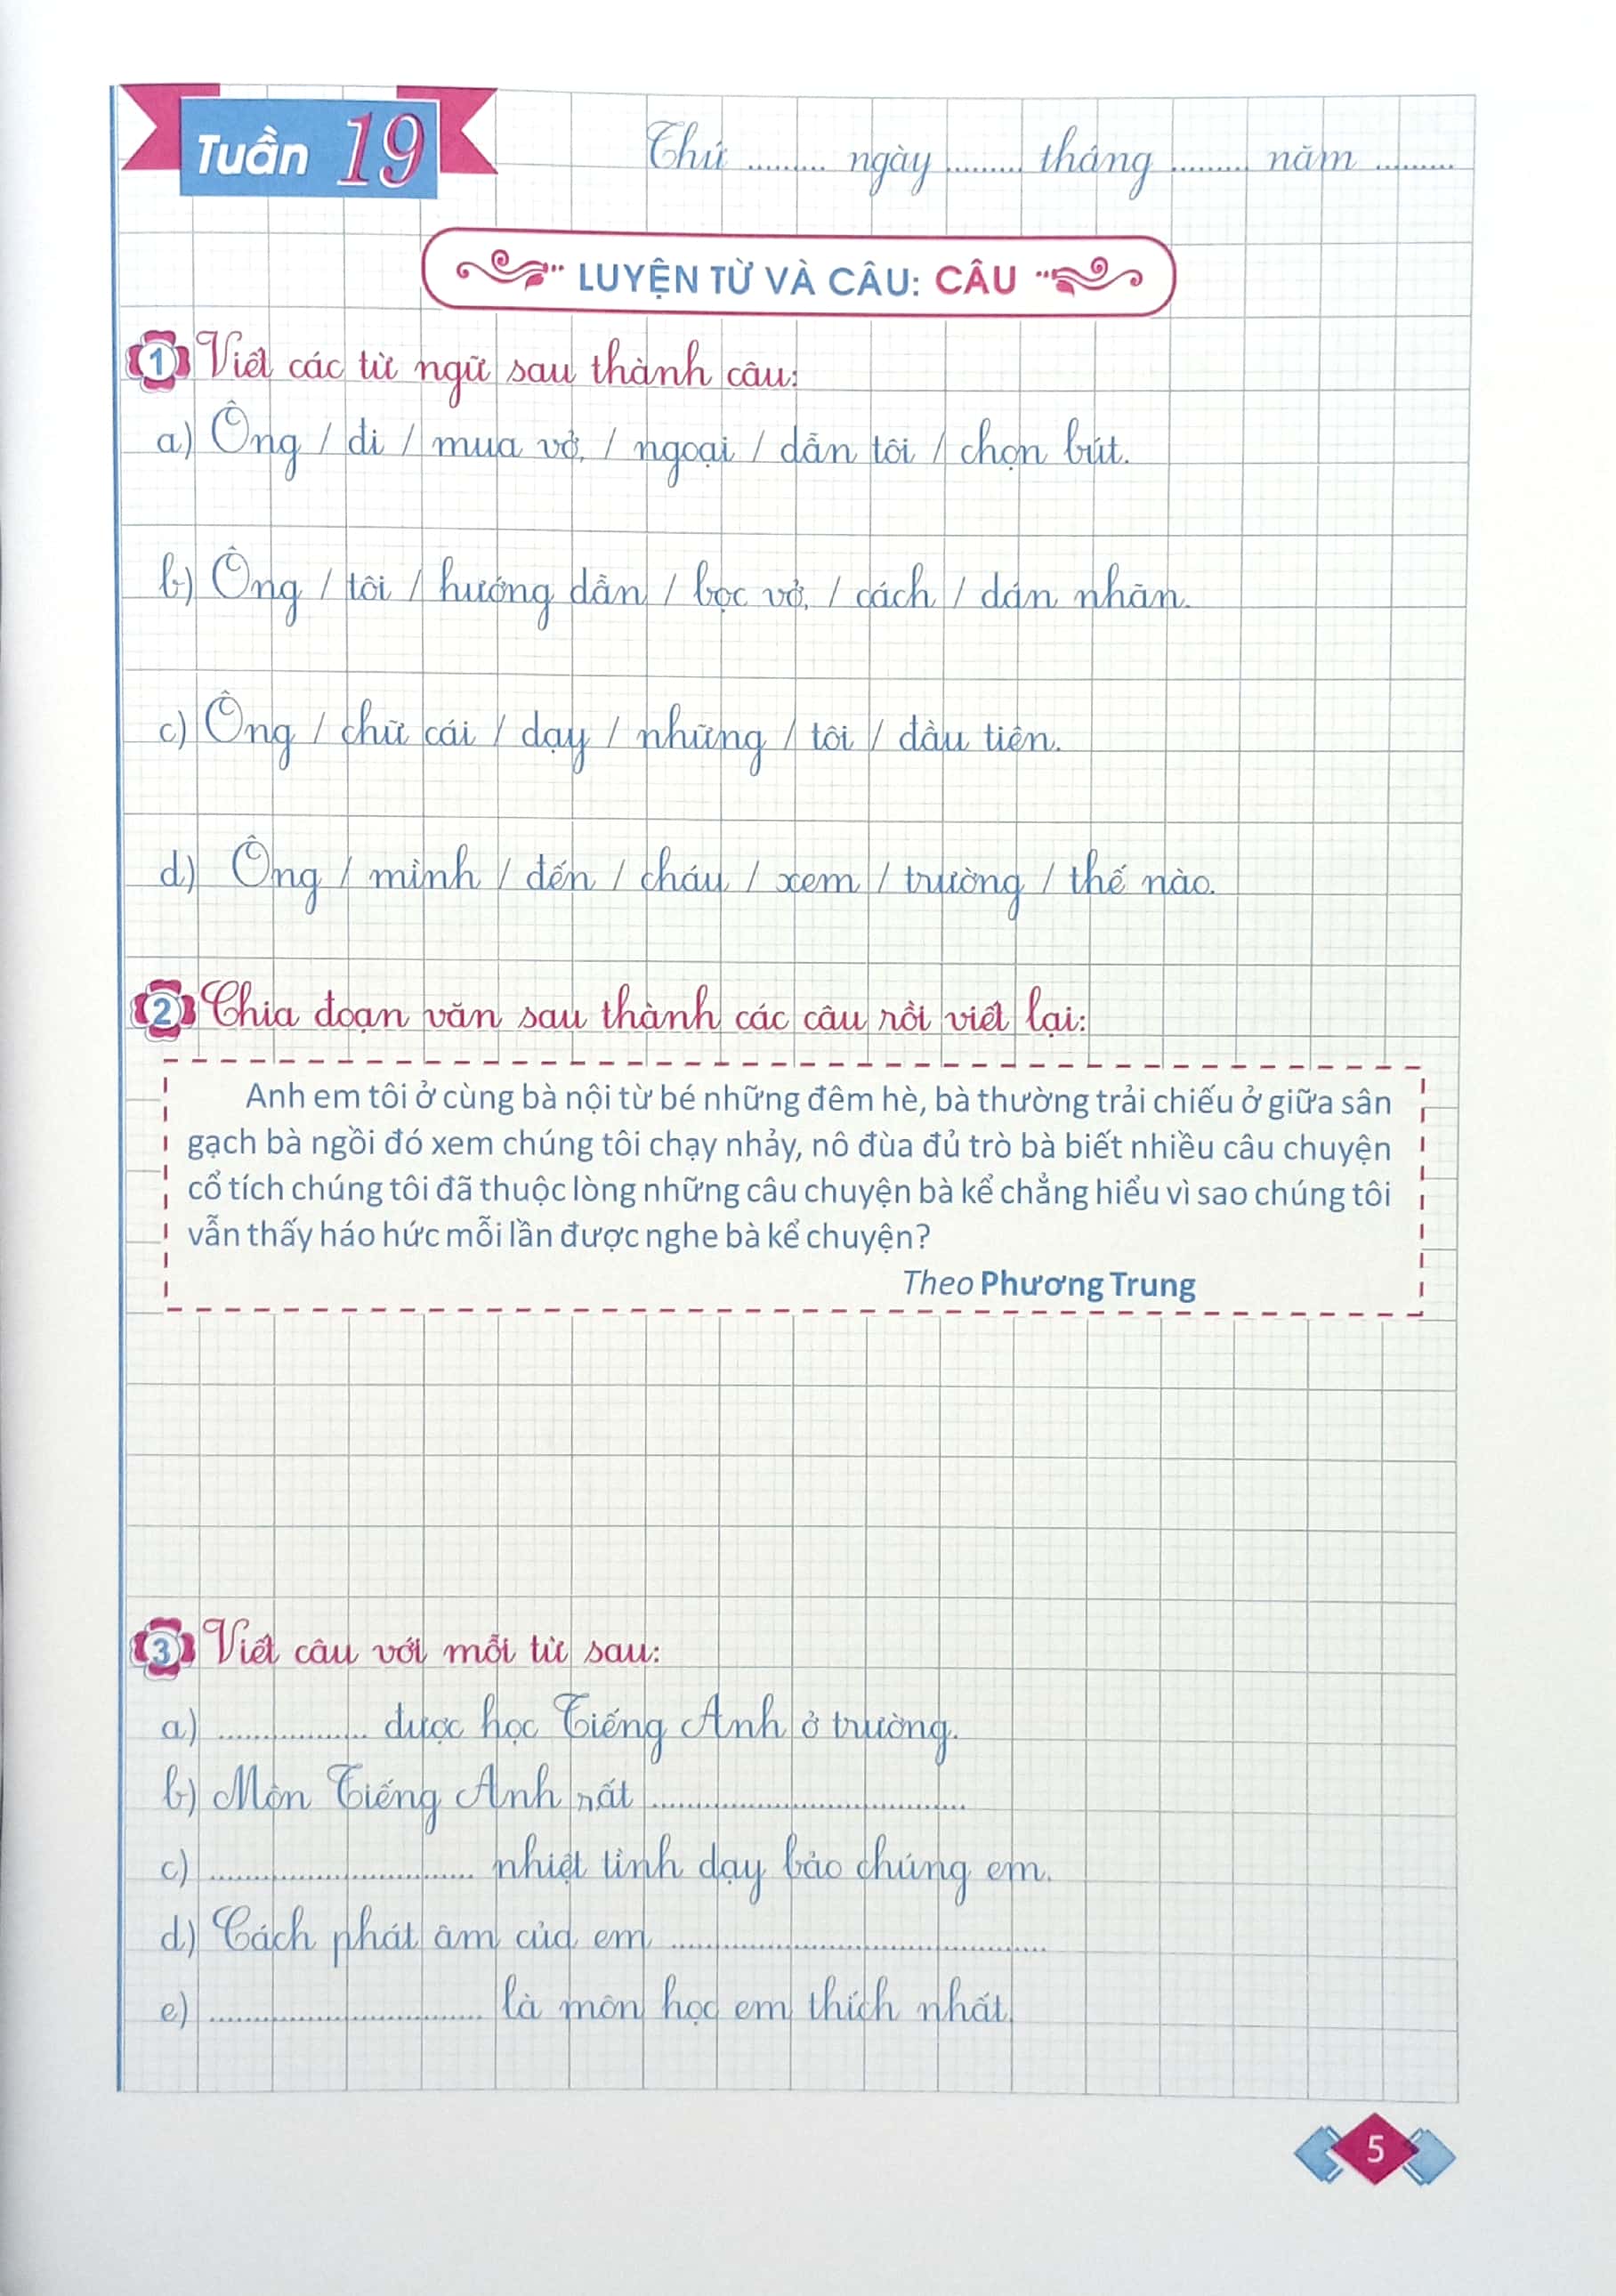 Tuần 19
Thứ ......... ngày ......... tháng ......... năm .........
LUYỆN TỪ VÀ CÂU: CÂU
1 Viết các từ ngữ sau thành câu:
a) Ông / đi / mua vở, / ngoại / dẫn tôi / chọn bút.
b) Ông / tôi / hướng dẫn / bọc vở, / cách / dán nhãn.
c) Ông / chữ cái / dạy / những / tôi / đầu tiên.
d) Ông / mình / đến / cháu / xem / trường / thế nào.
2 Chia đoạn văn sau thành các câu rồi viết lại:
Anh em tôi ở cùng bà nội từ bé những đêm hè, bà thường trải chiếu ở giữa sân
gạch bà ngồi đó xem chúng tôi chạy nhảy, nô đùa đủ trò bà biết nhiều câu chuyện
cổ tích chúng tôi đã thuộc lòng những câu chuyện bà kể chẳng hiểu vì sao chúng tôi
vẫn thấy háo hức mỗi lần được nghe bà kể chuyện?
Theo Phương Trung
3 Viết câu với mỗi từ sau:
a) .................. được học Tiếng Anh ở trường.
b) Môn Tiếng Anh rất ....................................
c) .............................. nhiệt tình dạy bảo chúng em.
d) Cách phát âm của em ..........................................
e) .............................. là môn học em thích nhất.
5